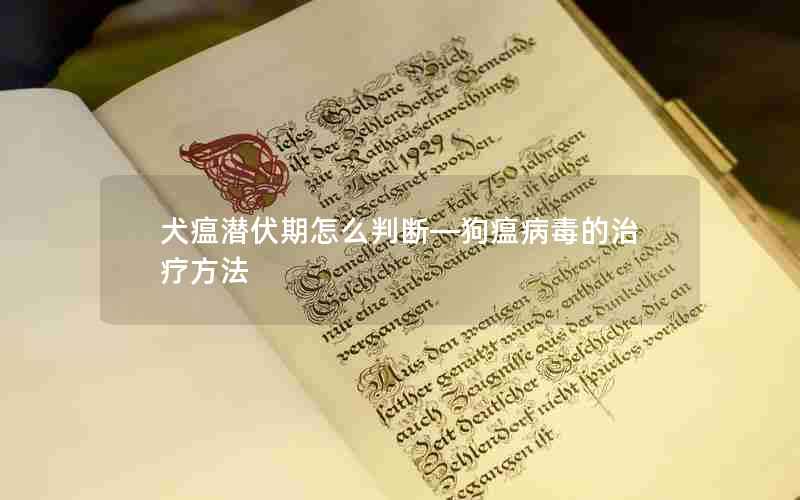 Dieses Goldene Buch
ist der Zehlendorfer Gemeinde
zur Rathauseinweihung
im April 1929
zugeeignet worden.
der fast 750 jährigen
ist seither
Geschichte
nur eine
vergangen.
犬瘟潜伏期怎么判断—狗瘟病毒的治
疗方法
Aus den wenigen Jahren, die
seither genützt wurde, enthält es jedoch
auch Zeugnisse aus der dunkelsten
Zeit deutscher Geschichte, die an
Zehlendorf nicht spurlos vorüber-
gegangen ist.